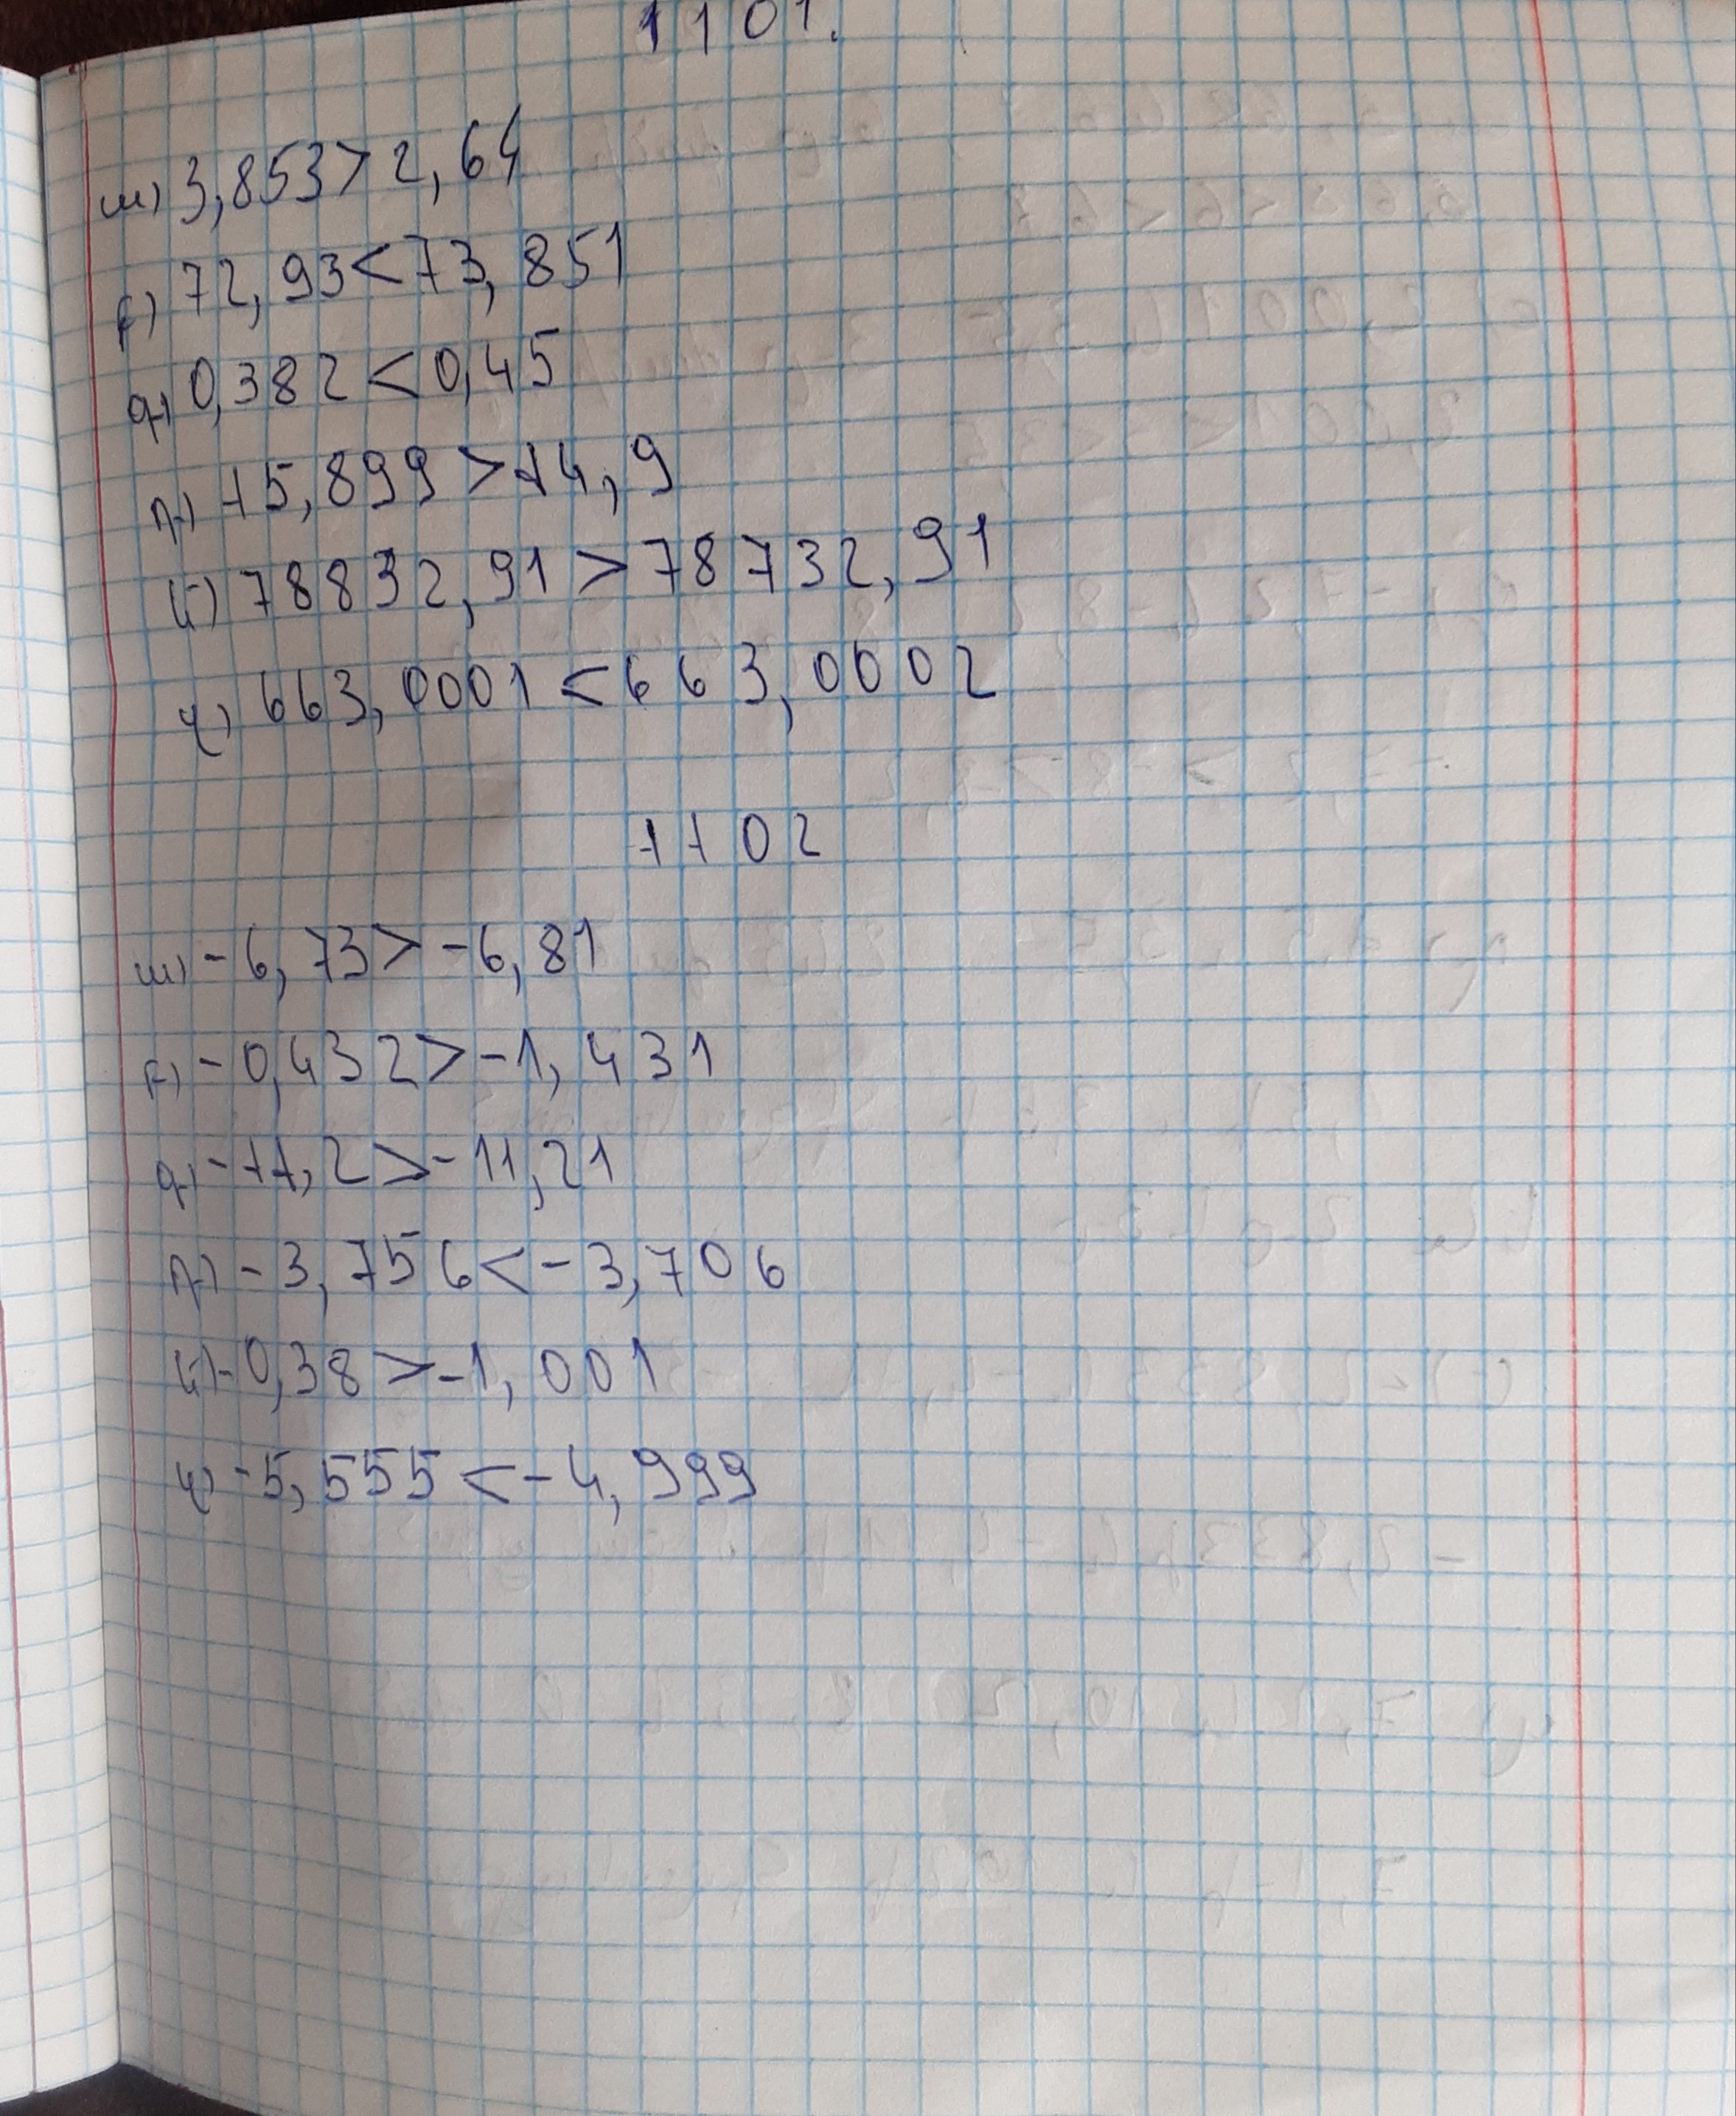 1101.
ա) 3,853 > 2,64
բ) 72,93 < 73,851
գ) 0,382 < 0,45
դ) 15,899 > 14,9
ե) 78832,91 > 78732,91
զ) 663,0001 < 663,0002
1102
ա) -6,73 > -6,81
բ) -0,432 > -1,431
գ) -11,2 > -11,21
դ) -3,756 < -3,706
ե) -0,38 > -1,001
զ) -5,555 < -4,999